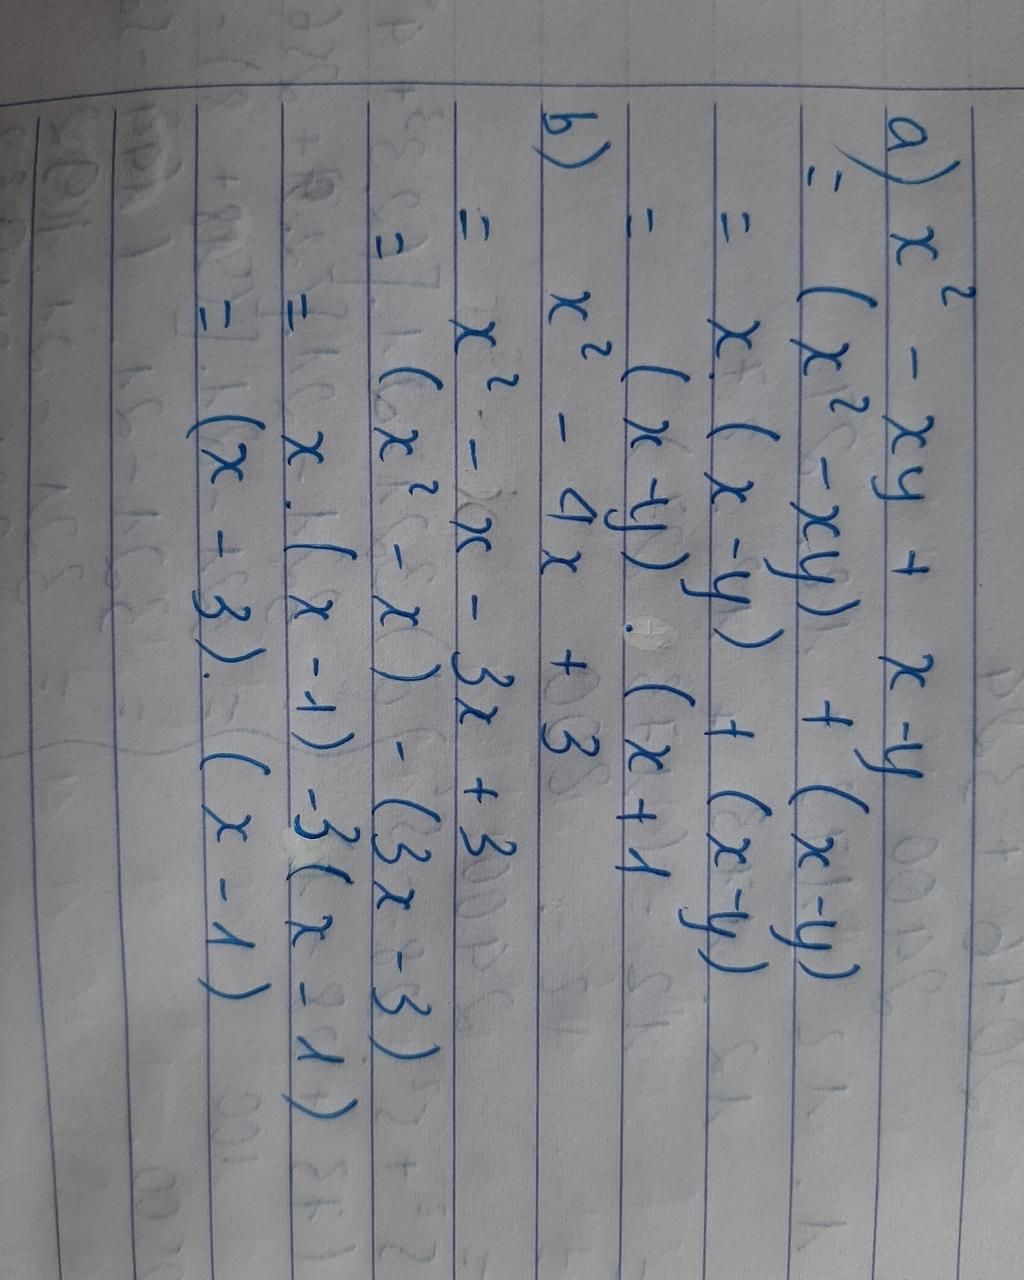 a) x² - xy + x - y
= (x² - xy) + (x - y)
= x. (x - y) + (x - y)
= (x + y) . (x + 1
b) x² - 4x + 3
= x² - x - 3x + 3
= (x² - x) - (3x - 3)
= x. (x - 1) - 3(x - 1)
= (x - 3). (x - 1)